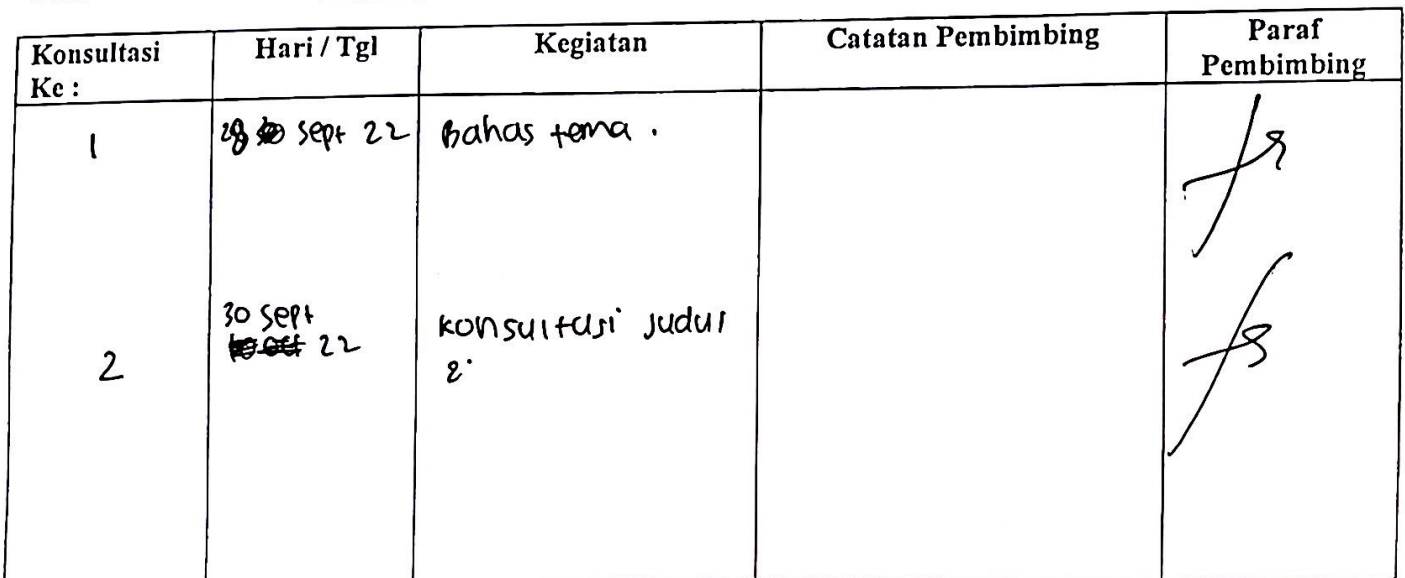 Konsultasi Ke : Hari / Tgl Kegiatan Catatan Pembimbing Paraf Pembimbing
1 28 Sept 22 Bahas tema .
2 30 Sept 22 Konsultasi Judul
2.